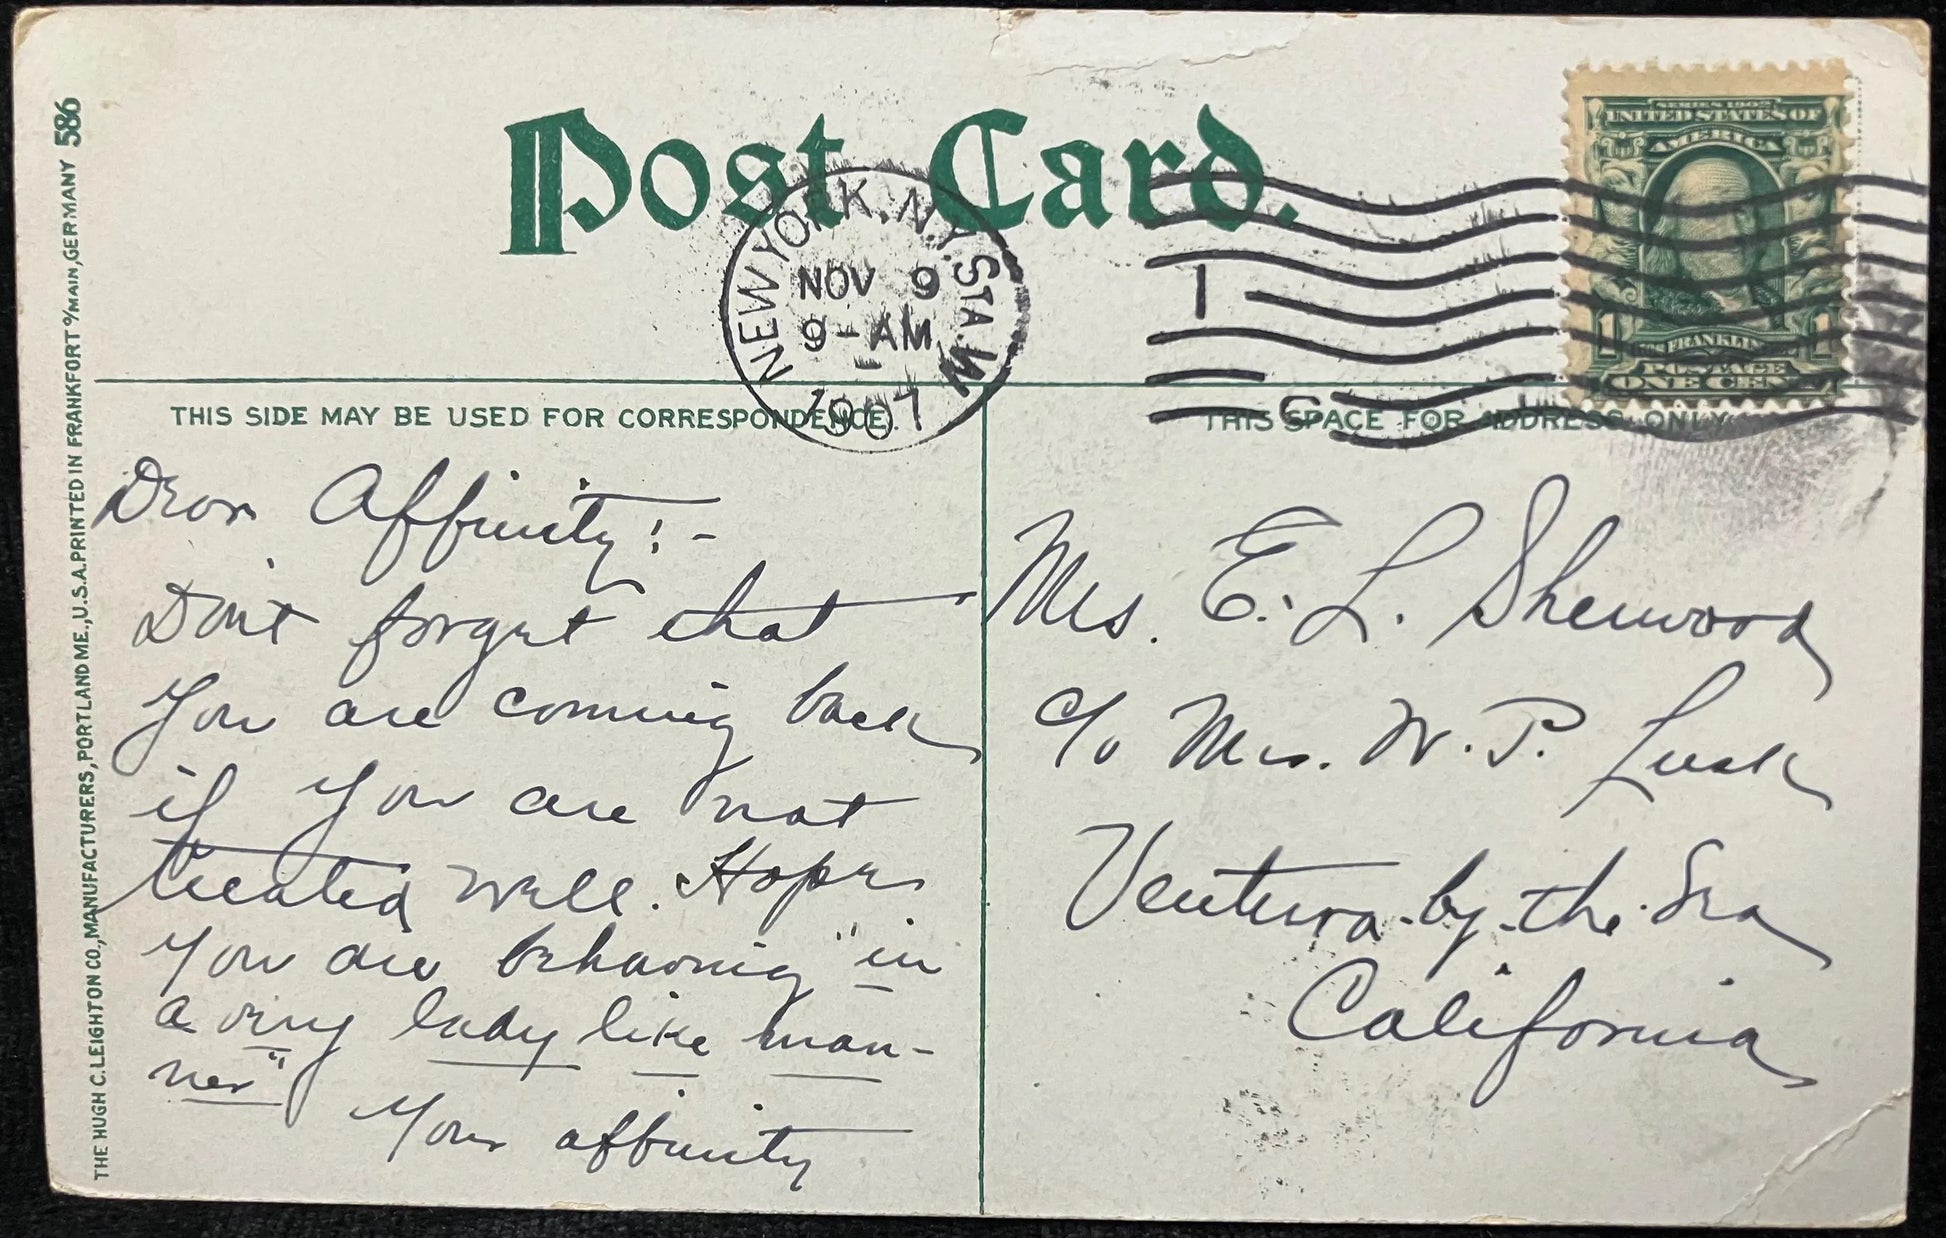 Post Card.
SERIES 1902
UNITED STATES OF
AMERICA
1 FRANKLIN 1
POSTAGE
ONE CENT
NEW YORK, N.Y. STA. W
NOV 9
9-AM
1907
1
THIS SIDE MAY BE USED FOR CORRESPONDENCE.
THIS SPACE FOR ADDRESS ONLY
THE HUGH C. LEIGHTON CO., MANUFACTURERS, PORTLAND ME., U.S.A. PRINTED IN FRANKFORT o/MAIN, GERMANY 586
Dear Affinity:-
Don't forget that
you are coming back
if you are not
treated well. Hope
you are behaving "in
a very lady like man-
ner"
Your affinity
Mrs. E. L. Sherwood
c/o Mrs. W. P. Lusk
Ventura-by-the-Sea
California